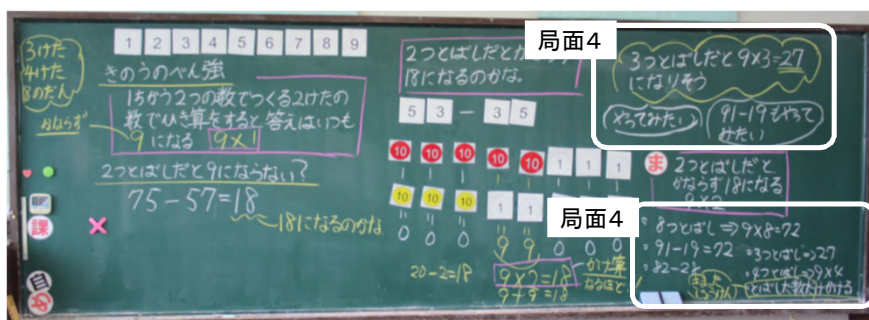 3けた
4けた
8のだん
1 2 3 4 5 6 7 8 9
きのうのべん強
1ちがう2つの数でつくる2けたの
数でひき算をすると答えはいつも
9になる 9×1
かならず
2つとばしだと9にならない？
75－57＝18
18になるのかな
課
自
2つとばしだと
18になるのかな。
5 3 － 3 5
10 10 10 10 10 1 1 1
10 10 10 1 1
0 0 0 9 9 0 0 0
20－2＝18
9×2＝18
9＋9＝18
かけ算
なるほど
局面4
3つとばしだと9×3＝27
になりそう
やってみたい
91－19もやって
みたい
ま
2つとばしだと、
かならず18になる
9×2
局面4
8つとばし⇒9×8＝72
91－19＝72
82－28
3つとばし⇒27
4つとばし⇒9×4
とばした数だけかける